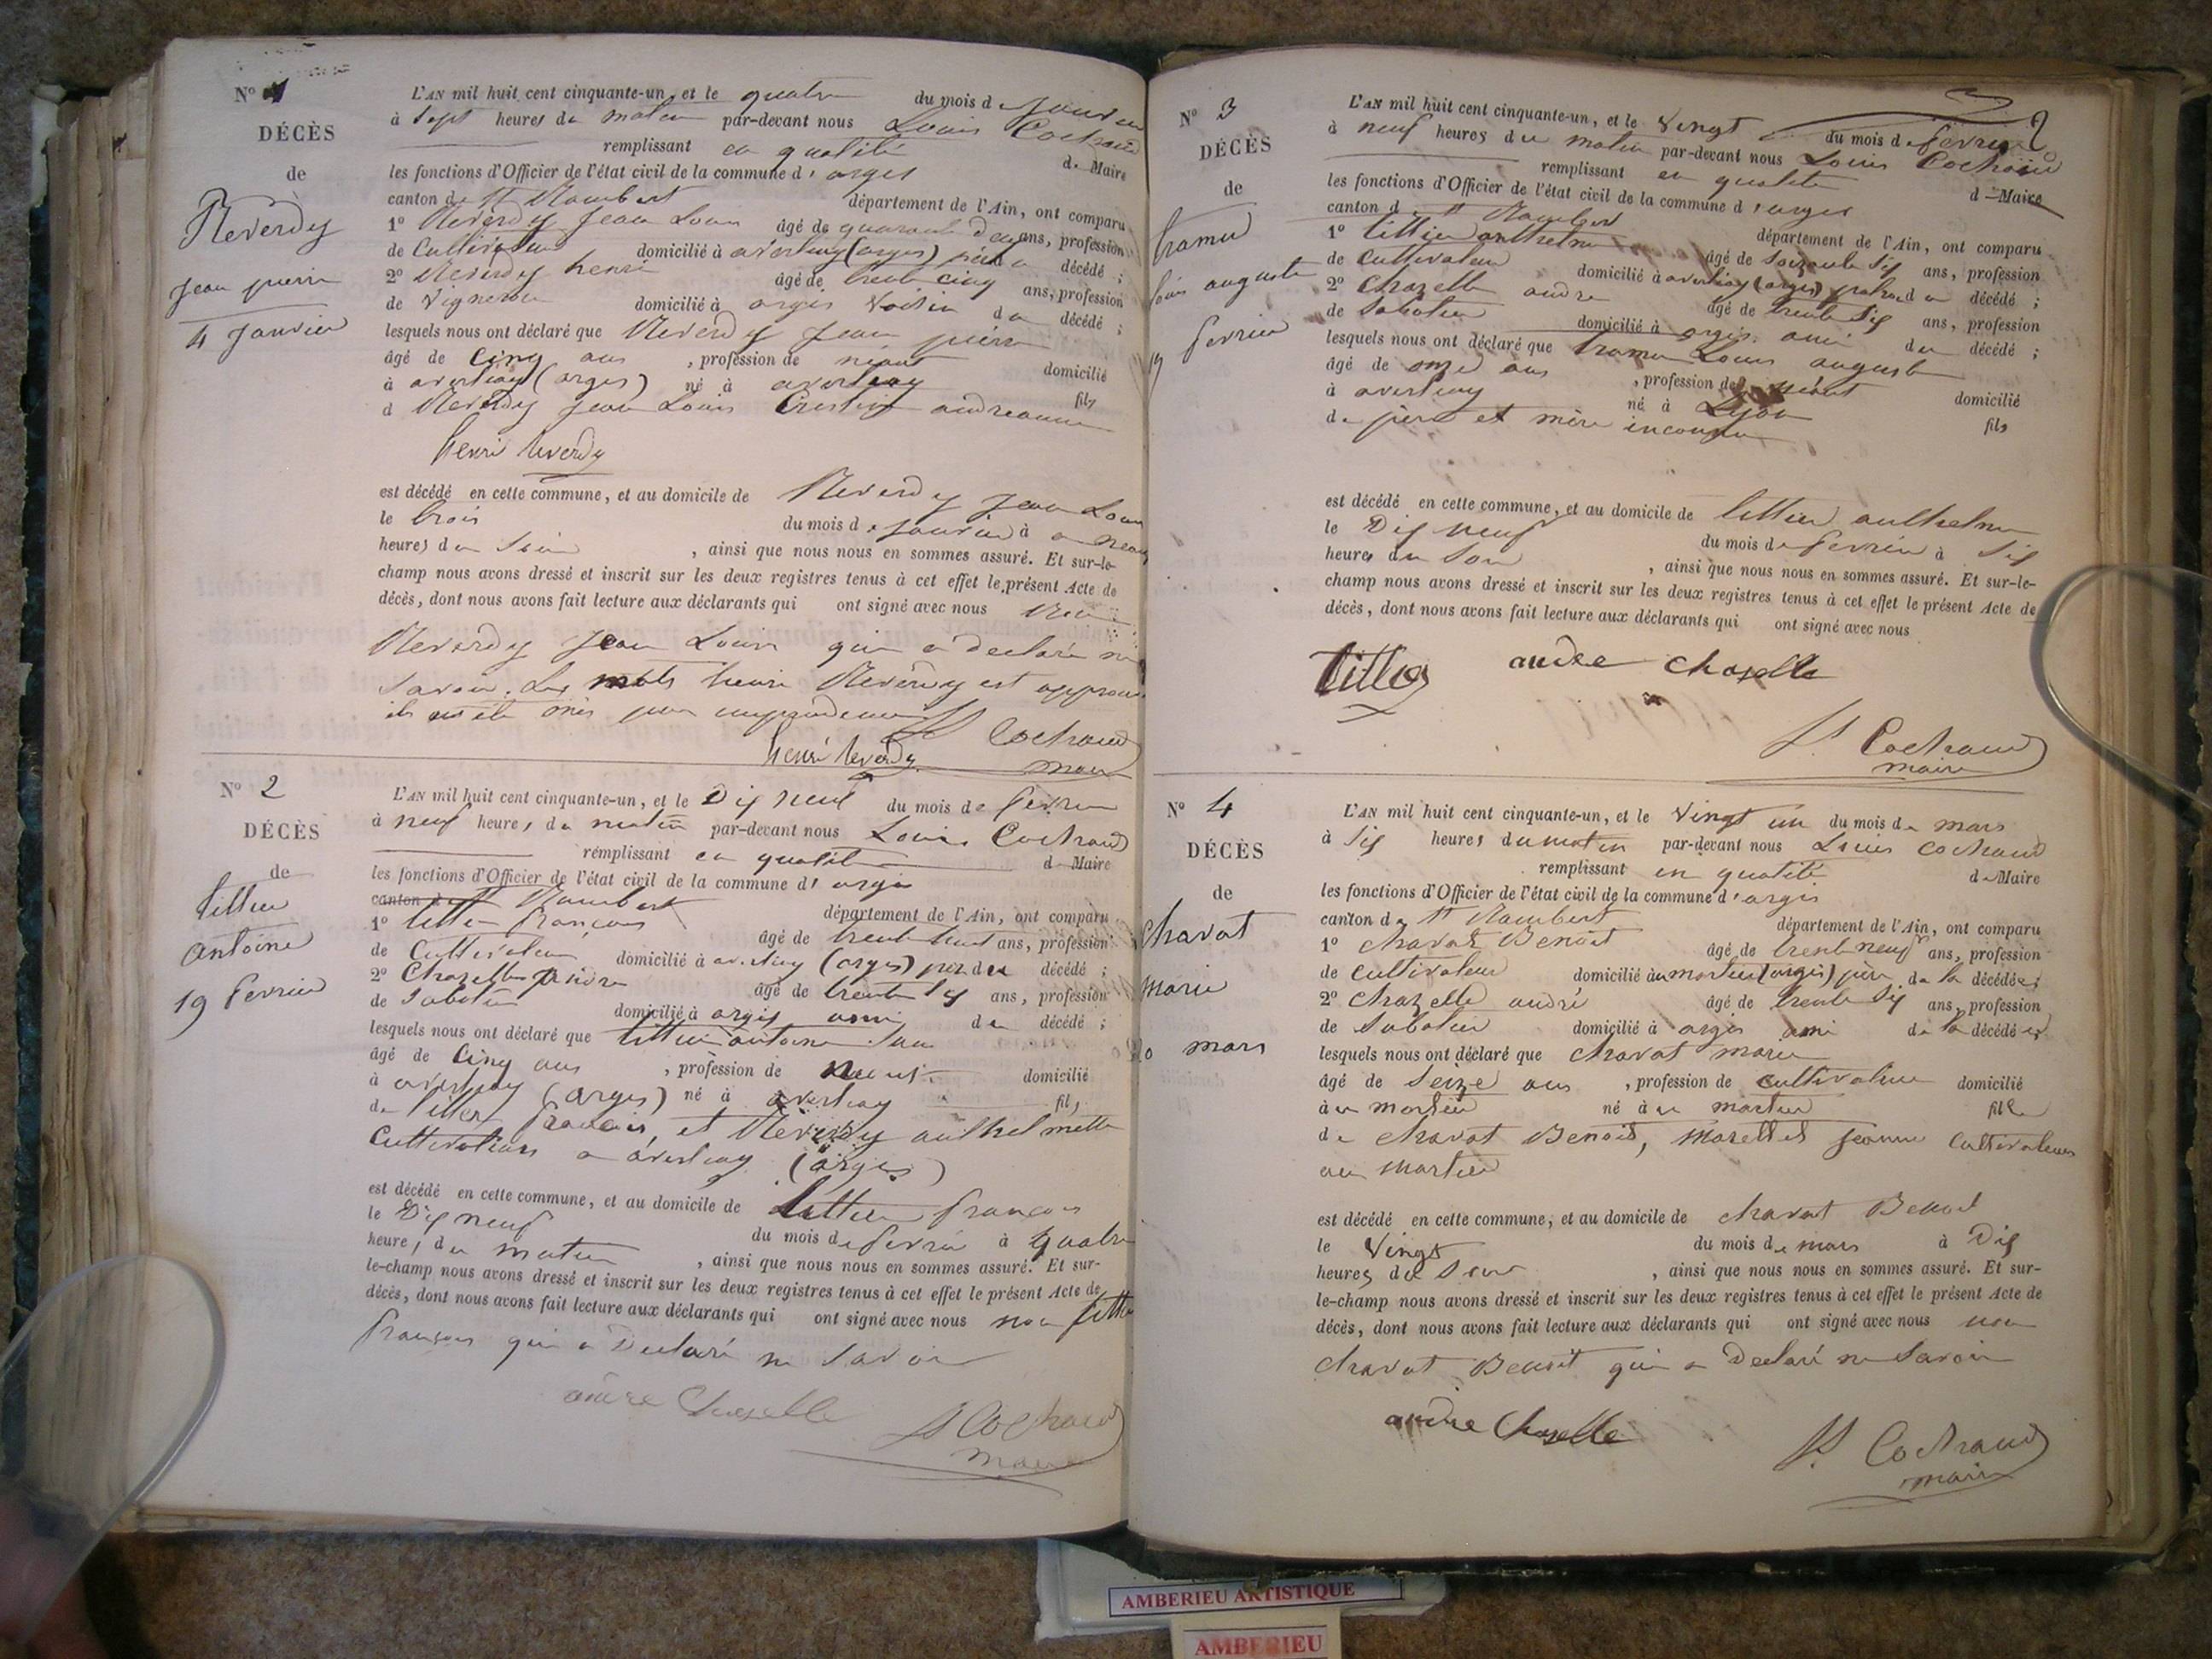 N° 1
DÉCÈS
de
Reverdy
Jean pierre
4 Janvier
L'AN mil huit cent cinquante-un, et le quatre du mois de Janvier
à Sept heures du matin par-devant nous Louis Cochaud
remplissant en qualité de Maire
les fonctions d'Officier de l'état civil de la commune d'arges
canton de St Rambert département de l'Ain, ont comparu
1° Reverdy Jean Louis âgé de quarante deux ans, profession
de Cultivateur domicilié à averliay (arges) père du décédé ;
2° Reverdy henri âgé de trente cinq ans, profession
de Vigneron domicilié à argis Voisin du décédé ;
lesquels nous ont déclaré que Reverdy Jean pierre
âgé de Cinq ans , profession de néant domicilié
à averliay (arges) né à averliay fils
d Reverdy Jean Louis Crestin andreanne
henri reverdy
est décédé en cette commune, et au domicile de Reverdy Jean Louis
le trois du mois de Janvier à
heures du Soir , ainsi que nous nous en sommes assuré. Et sur-le-
champ nous avons dressé et inscrit sur les deux registres tenus à cet effet le présent Acte de
décès, dont nous avons fait lecture aux déclarants qui ont signé avec nous
Reverdy Jean Louis qui a declaré ne
Savoir. Les mots henri Reverdy est
Cochaud
henri reverdy maire
N° 2
DÉCÈS
de
tittier
antoine
19 fevrier
L'AN mil huit cent cinquante-un, et le Dix neuf du mois de fevrier
à neuf heures du matin par-devant nous Louis Cochaud
remplissant en qualité de Maire
les fonctions d'Officier de l'état civil de la commune d'argis
canton de St Rambert département de l'Ain, ont comparu
1° tittier francois âgé de trente huit ans, profession
de Cultivateur domicilié à averliay (arges) père du décédé ;
2° Chazelle andre âgé de trente six ans, profession
de Sabotier domicilié à argis ami du décédé ;
lesquels nous ont déclaré que tittier antoine
âgé de Cinq ans , profession de néant domicilié
à averliay (arges) né à averliay fils
de tittier francois et Reverdy anthelmette
Cultivateurs a averliay (arges)
est décédé en cette commune, et au domicile de tittier francois
le Dix neuf du mois de fevrier à quatre
heures du matin , ainsi que nous nous en sommes assuré. Et sur-
le-champ nous avons dressé et inscrit sur les deux registres tenus à cet effet le présent Acte de
décès, dont nous avons fait lecture aux déclarants qui ont signé avec nous non tittier
francois qui a Declaré ne Savoir
andre Chazelle
L Cochaud
maire
N° 3
DÉCÈS
de
tramu
louis auguste
19 fevrier
L'AN mil huit cent cinquante-un, et le Vingt du mois de fevrier
à neuf heures du matin par-devant nous Louis Cochaud
remplissant en qualité d Maire
les fonctions d'Officier de l'état civil de la commune d'arges
canton de St Rambert département de l'Ain, ont comparu
1° tittier anthelme âgé de Soixante six ans, profession
de Cultivateur domicilié à averliay (arges) patron du décédé ;
2° Chazelle andre âgé de trente six ans, profession
de Sabotier domicilié à argis ami du décédé ;
lesquels nous ont déclaré que tramu Louis auguste
âgé de onze ans , profession de néant domicilié
à averliay né à Lyon fils
de père et mère inconnu
est décédé en cette commune, et au domicile de tittier anthelme
le Dix neuf du mois de fevrier à Six
heures du Soir , ainsi que nous nous en sommes assuré. Et sur-le-
champ nous avons dressé et inscrit sur les deux registres tenus à cet effet le présent Acte de
décès, dont nous avons fait lecture aux déclarants qui ont signé avec nous
andre chazelle
L Cochaud
maire
N° 4
DÉCÈS
de
Chavat
marie
20 mars
L'AN mil huit cent cinquante-un, et le Vingt un du mois de mars
à Six heures du matin par-devant nous Louis Cochaud
remplissant en qualité de Maire
les fonctions d'Officier de l'état civil de la commune d'argis
canton de St Rambert département de l'Ain, ont comparu
1° Chavat Benoit âgé de trente neuf ans, profession
de Cultivateur domicilié au martier (argis) père de la décédée ;
2° Chazelle andré âgé de trente six ans, profession
de Sabotier domicilié à argis ami de la décédée
lesquels nous ont déclaré que Chavat marie
âgé de Seize ans , profession de Cultivateur domicilié
à au martier né à au martier fille
de Chavat Benoit, Morellet Jeanne Cultivateurs
au martier
est décédé en cette commune, et au domicile de Chavat Benoit
le Vingt du mois de mars à Dix
heures du Soir , ainsi que nous nous en sommes assuré. Et sur-
le-champ nous avons dressé et inscrit sur les deux registres tenus à cet effet le présent Acte de
décès, dont nous avons fait lecture aux déclarants qui ont signé avec nous non
Chavat Benoit qui a Declaré ne Savoir
andre Chazelle
L Cochaud
maire
AMBERIEU ARTISTIQUE
AMBERIEU